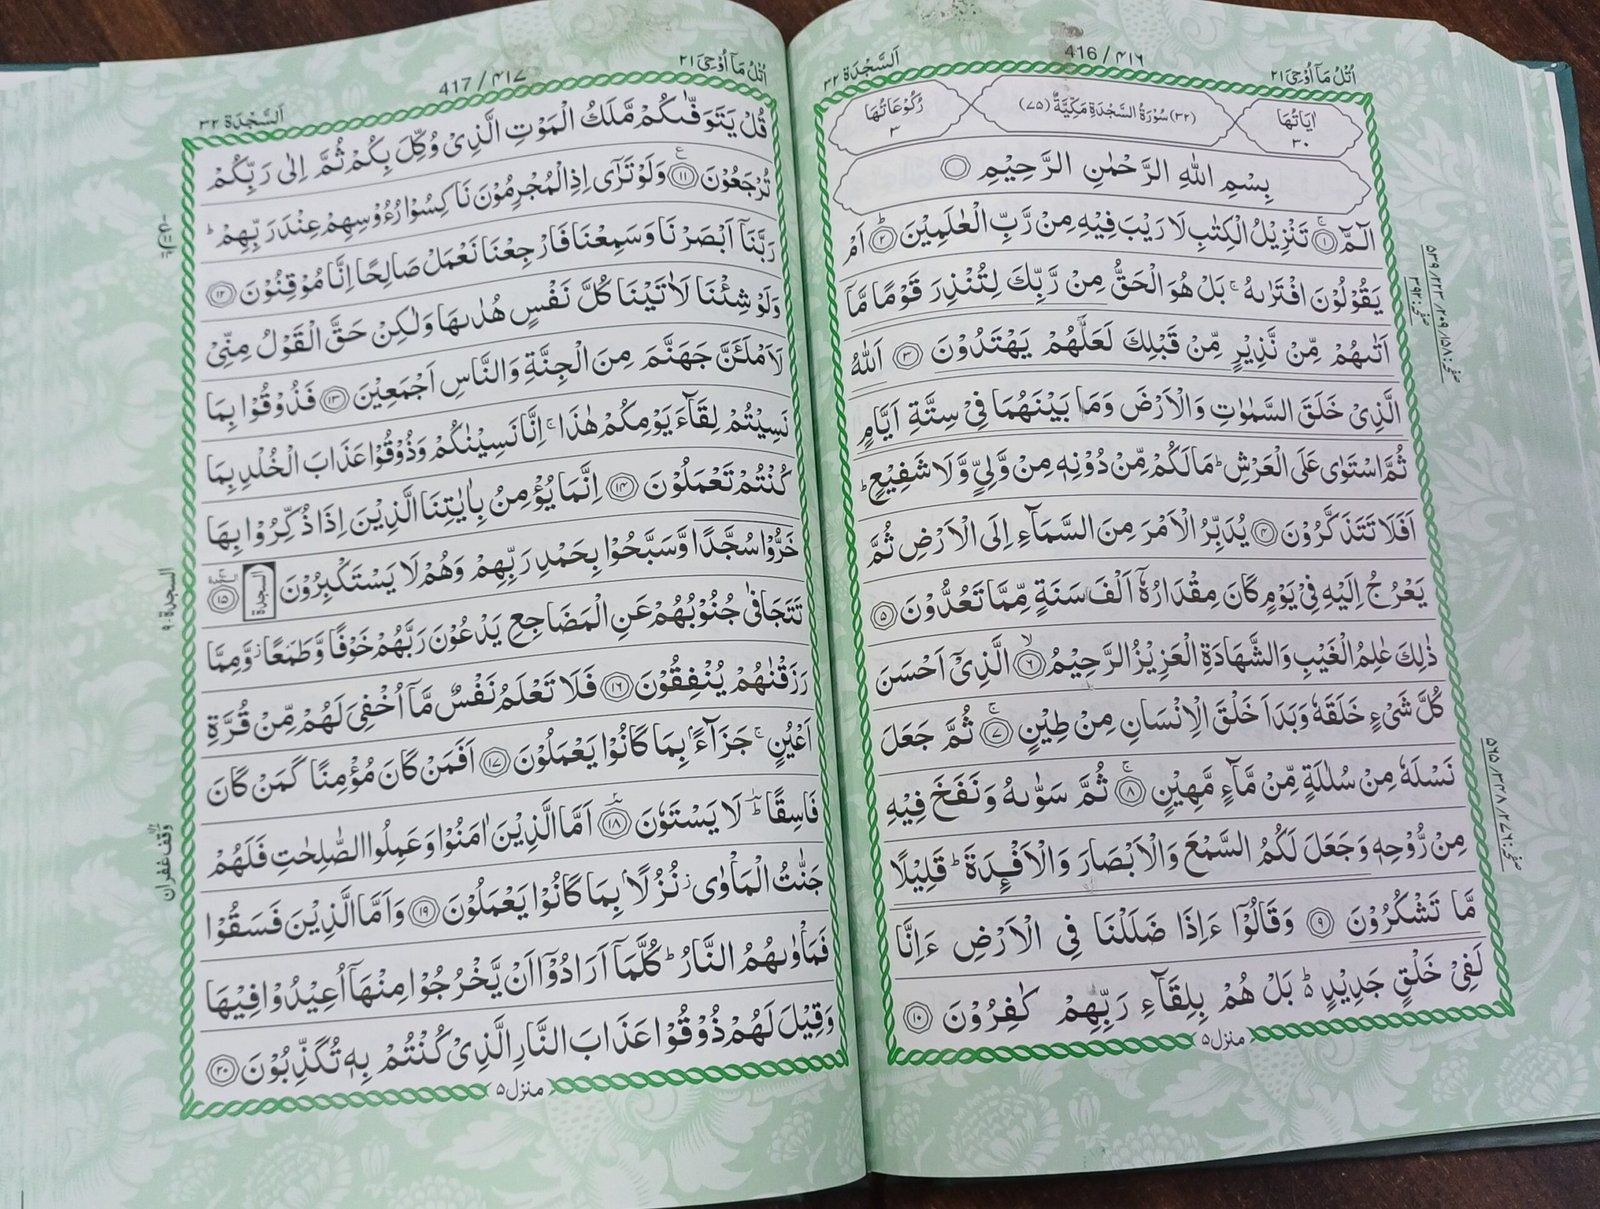 اُتْلُ مَآ اُوْحِیَ ۲۱
416 / ۴۱۶
اَلسَّجْدَة ۳۲
اٰيَاتُهَا ۳۰
(۳۲) سُوْرَةُ السَّجْدَةِ مَكِّيَّةٌ (۷۵)
رُكُوْعَاتُهَا ۳
بِسْمِ اللهِ الرَّحْمٰنِ الرَّحِيْمِ
الٓمّٓ ۚ﴿۱﴾ تَنْزِيْلُ الْكِتٰبِ لَا رَيْبَ فِيْهِ مِنْ رَّبِّ الْعٰلَمِيْنَ ؕ﴿۲﴾ اَمْ
يَقُوْلُوْنَ افْتَرٰىهُ ۚ بَلْ هُوَ الْحَقُّ مِنْ رَّبِّكَ لِتُنْذِرَ قَوْمًا مَّاۤ
اَتٰىهُمْ مِّنْ نَّذِيْرٍ مِّنْ قَبْلِكَ لَعَلَّهُمْ يَهْتَدُوْنَ ﴿۳﴾ اَللّٰهُ
الَّذِيْ خَلَقَ السَّمٰوٰتِ وَالْاَرْضَ وَمَا بَيْنَهُمَا فِيْ سِتَّةِ اَيَّامٍ
ثُمَّ اسْتَوٰى عَلَى الْعَرْشِ ؕ مَا لَكُمْ مِّنْ دُوْنِهٖ مِنْ وَّلِيٍّ وَّلَا شَفِيْعٍ ؕ
اَفَلَا تَتَذَكَّرُوْنَ ﴿۴﴾ يُدَبِّرُ الْاَمْرَ مِنَ السَّمَآءِ اِلَى الْاَرْضِ ثُمَّ
يَعْرُجُ اِلَيْهِ فِيْ يَوْمٍ كَانَ مِقْدَارُهٗۤ اَلْفَ سَنَةٍ مِّمَّا تَعُدُّوْنَ ﴿۵﴾
ذٰلِكَ عٰلِمُ الْغَيْبِ وَالشَّهَادَةِ الْعَزِيْزُ الرَّحِيْمُ ۙ﴿۶﴾ الَّذِيْۤ اَحْسَنَ
كُلَّ شَيْءٍ خَلَقَهٗ وَبَدَاَ خَلْقَ الْاِنْسَانِ مِنْ طِيْنٍ ۚ﴿۷﴾ ثُمَّ جَعَلَ
نَسْلَهٗ مِنْ سُلٰلَةٍ مِّنْ مَّآءٍ مَّهِيْنٍ ۚ﴿۸﴾ ثُمَّ سَوّٰىهُ وَنَفَخَ فِيْهِ
مِنْ رُّوْحِهٖ وَجَعَلَ لَكُمُ السَّمْعَ وَالْاَبْصَارَ وَالْاَفْـِٕدَةَ ؕ قَلِيْلًا
مَّا تَشْكُرُوْنَ ﴿۹﴾ وَقَالُوْۤا ءَاِذَا ضَلَلْنَا فِي الْاَرْضِ ءَاِنَّا
لَفِيْ خَلْقٍ جَدِيْدٍ ؕ۬ بَلْ هُمْ بِلِقَآءِ رَبِّهِمْ كٰفِرُوْنَ ﴿۱۰﴾
منزل۵
اُتْلُ مَآ اُوْحِیَ ۲۱
417 / ۴۱۷
اَلسَّجْدَة ۳۲
قُلْ يَتَوَفّٰىكُمْ مَّلَكُ الْمَوْتِ الَّذِيْ وُكِّلَ بِكُمْ ثُمَّ اِلٰى رَبِّكُمْ
تُرْجَعُوْنَ ﴿۱۱﴾ۧ وَلَوْ تَرٰۤى اِذِ الْمُجْرِمُوْنَ نَاكِسُوْا رُءُوْسِهِمْ عِنْدَ رَبِّهِمْ ؕ
رَبَّنَاۤ اَبْصَرْنَا وَسَمِعْنَا فَارْجِعْنَا نَعْمَلْ صَالِحًا اِنَّا مُوْقِنُوْنَ ﴿۱۲﴾
وَلَوْ شِئْنَا لَاٰتَيْنَا كُلَّ نَفْسٍ هُدٰىهَا وَلٰكِنْ حَقَّ الْقَوْلُ مِنِّيْ
لَاَمْلَـَٔنَّ جَهَنَّمَ مِنَ الْجِنَّةِ وَالنَّاسِ اَجْمَعِيْنَ ﴿۱۳﴾ فَذُوْقُوْا بِمَا
نَسِيْتُمْ لِقَآءَ يَوْمِكُمْ هٰذَا ۚ اِنَّا نَسِيْنٰكُمْ وَذُوْقُوْا عَذَابَ الْخُلْدِ بِمَا
كُنْتُمْ تَعْمَلُوْنَ ﴿۱۴﴾ اِنَّمَا يُؤْمِنُ بِاٰيٰتِنَا الَّذِيْنَ اِذَا ذُكِّرُوْا بِهَا
خَرُّوْا سُجَّدًا وَّسَبَّحُوْا بِحَمْدِ رَبِّهِمْ وَهُمْ لَا يَسْتَكْبِرُوْنَ السجدة ﴿۱۵﴾
تَتَجَافٰى جُنُوْبُهُمْ عَنِ الْمَضَاجِعِ يَدْعُوْنَ رَبَّهُمْ خَوْفًا وَّطَمَعًا ؗ وَّمِمَّا
رَزَقْنٰهُمْ يُنْفِقُوْنَ ﴿۱۶﴾ فَلَا تَعْلَمُ نَفْسٌ مَّاۤ اُخْفِيَ لَهُمْ مِّنْ قُرَّةِ
اَعْيُنٍ ۚ جَزَآءًۢ بِمَا كَانُوْا يَعْمَلُوْنَ ﴿۱۷﴾ اَفَمَنْ كَانَ مُؤْمِنًا كَمَنْ كَانَ
فَاسِقًا ؕ لَا يَسْتَوٗنَ ﴿۱۸﴾ اَمَّا الَّذِيْنَ اٰمَنُوْا وَعَمِلُوا الصّٰلِحٰتِ فَلَهُمْ
جَنّٰتُ الْمَاْوٰى ؗ نُزُلًۢا بِمَا كَانُوْا يَعْمَلُوْنَ ﴿۱۹﴾ وَاَمَّا الَّذِيْنَ فَسَقُوْا
فَمَاْوٰىهُمُ النَّارُ ؕ كُلَّمَاۤ اَرَادُوْۤا اَنْ يَّخْرُجُوْا مِنْهَاۤ اُعِيْدُوْا فِيْهَا
وَقِيْلَ لَهُمْ ذُوْقُوْا عَذَابَ النَّارِ الَّذِيْ كُنْتُمْ بِهٖ تُكَذِّبُوْنَ ﴿۲۰﴾
منزل۵
السجدة ۹
وقف غفران